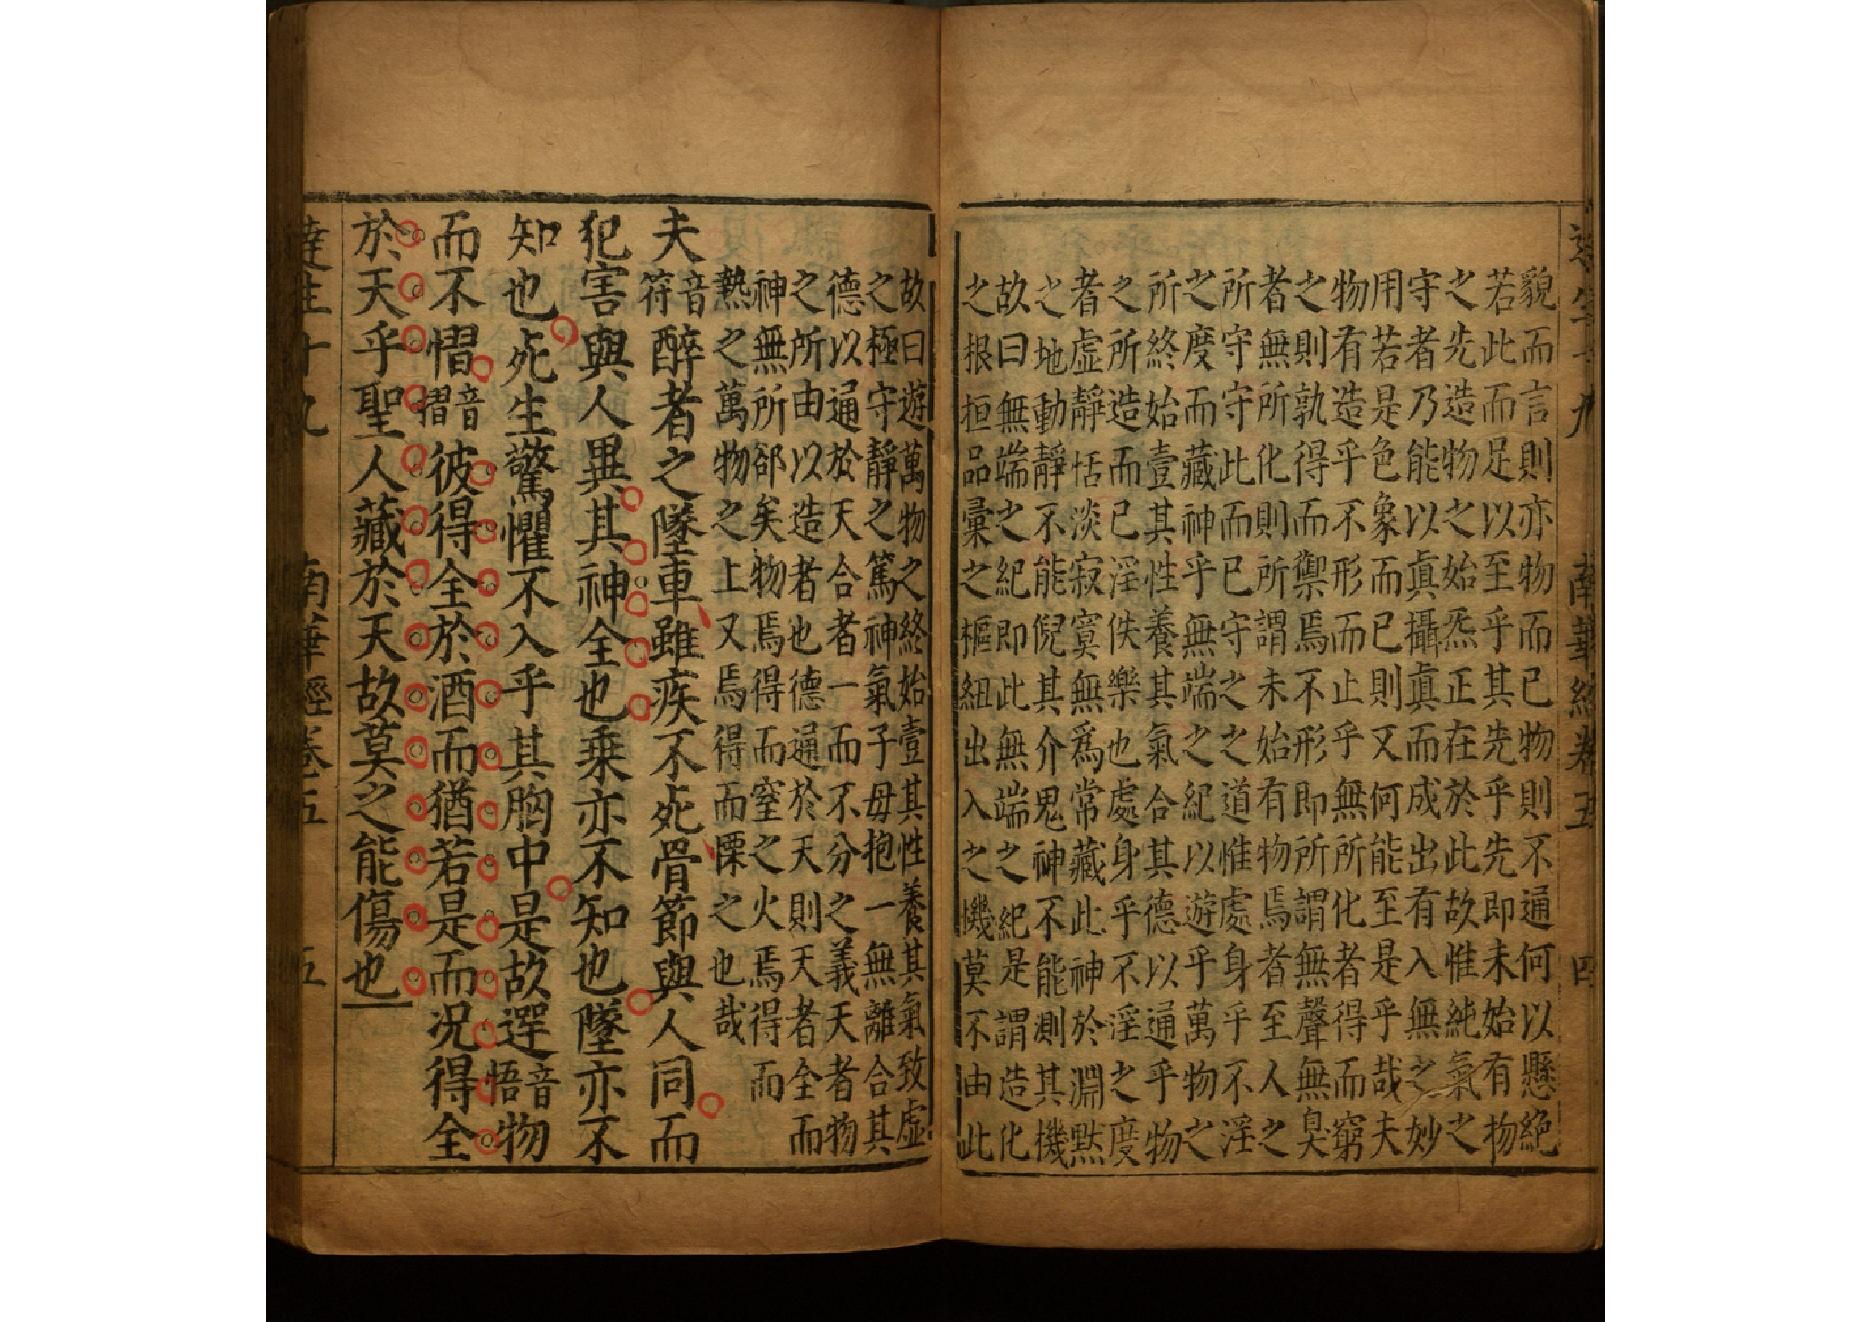 達生十九　南華經卷五　四
貌而言則亦物而已物則不通何以懸絕
若此而足以至乎其先乎先即未始有物
之先造物之始炁正在於此故惟純氣之
守者乃能以眞攝眞而成出有入無之妙
用若是色象而已則又何能至是乎哉夫
物有造乎不形而止乎無所化者得而窮
之則孰得而禦焉不形即所謂無聲無臭
者無所化則所謂未始有物焉者至人之
所守守此而已守之之道惟處身乎不淫
之度而藏神乎無端之紀以遊乎萬物之
所終始壹其性養其氣合其德以通乎物
之所造而已淫佚樂也處身乎不淫之度
者虛靜恬淡寂寞無爲常藏此神於淵默
之地動靜不能倪其介鬼神不能測其機
故曰無端之紀即此無端之紀是謂造化
之根品彙之樞紐出入之機莫不由此
故曰遊萬物之終始壹其性養其氣致虛
之極守靜之篤神氣子母抱一無離合其
德以通於天合者一而不分之義天者物
之所由以造者也德通於天則天者全而
神無所郤矣物焉得而窒之火焉得而
熱之萬物之上又焉得而慄之也哉
夫音符醉者之墜車雖疾不死骨節與人同而
犯害與人異其神全也乘亦不知也墜亦不
知也死生驚懼不入乎其胸中是故遻音悟物
而不慴音摺彼得全於酒而猶若是而況得全
於天乎聖人藏於天故莫之能傷也
達生十九　南華經卷五　五